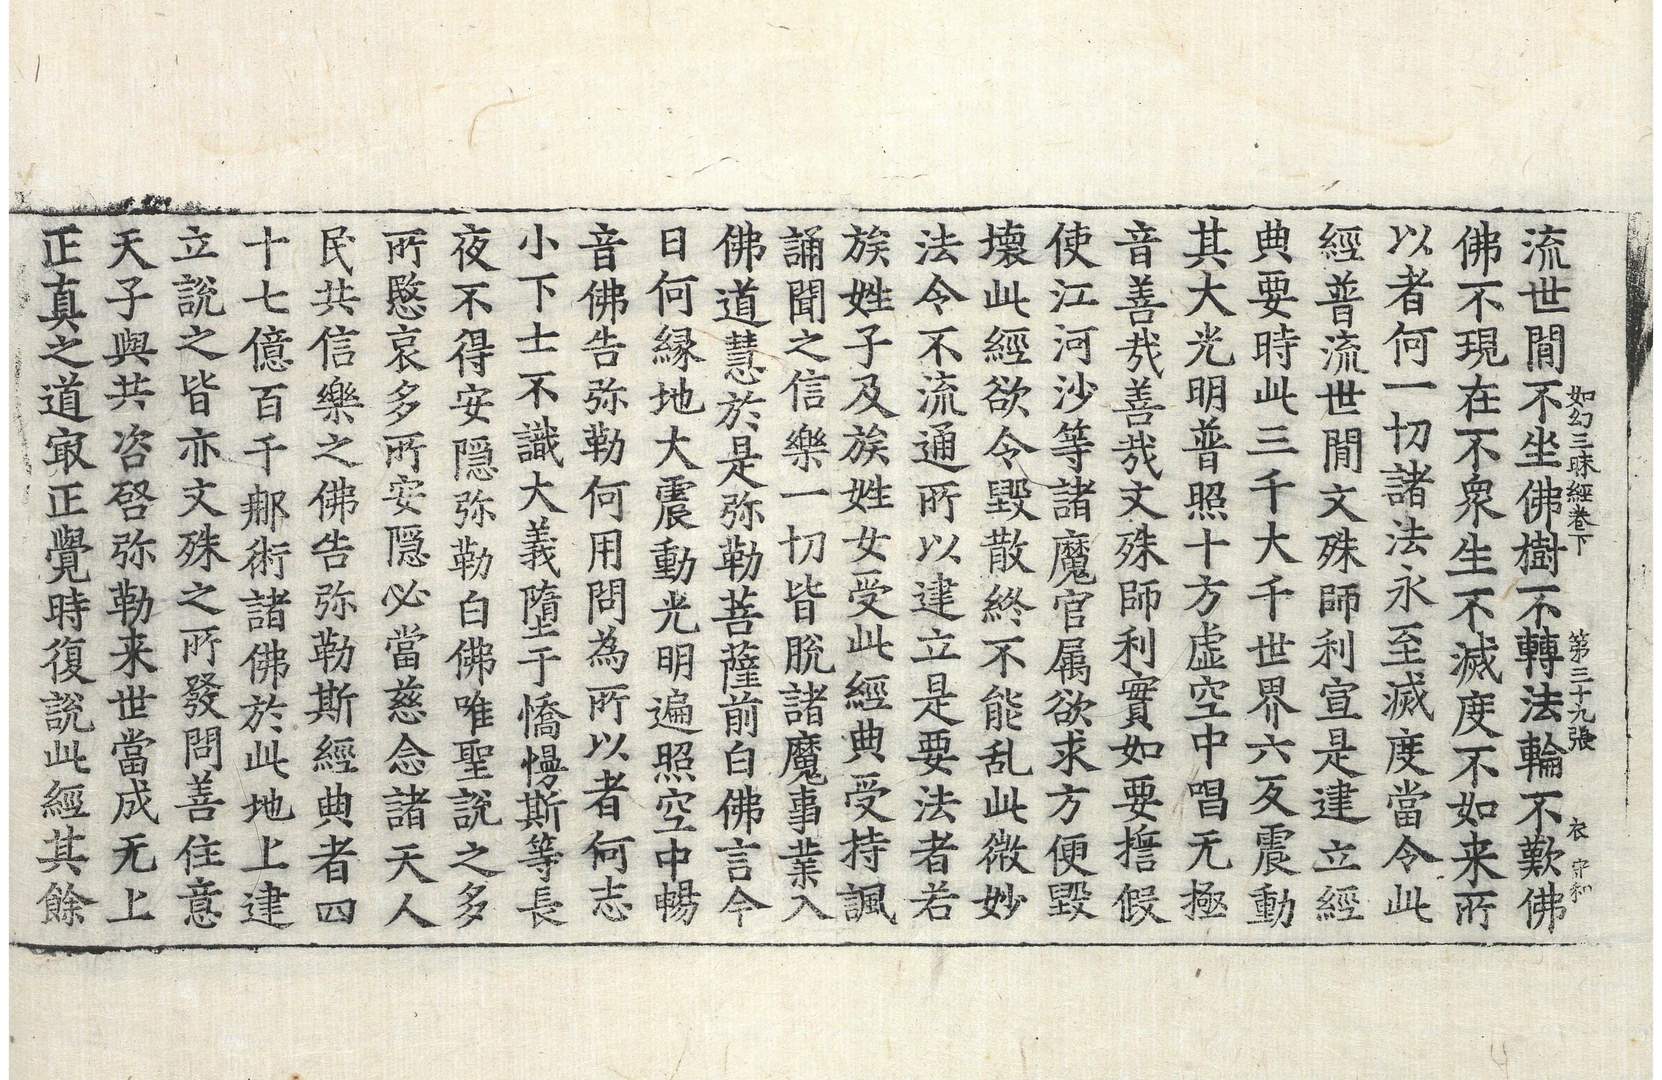 如幻三昧經卷下　第三十九張　衣　守和
流世間不坐佛樹不轉法輪不歎佛
佛不現在不衆生不滅度不如来所
以者何一切諸法永至滅度當令此
經普流世間文殊師利宣是建立經
典要時此三千大千世界六反震動
其大光明普照十方虛空中唱无極
音善哉善哉文殊師利實如要撸假
使江河沙等諸魔官属欲求方便毀
壞此經欲令毀散終不能乱此微妙
法令不流通所以建立是要法者若
族姓子及族姓女受此經典受持諷
誦聞之信樂一切皆脫諸魔事業入
佛道慧於是弥勒菩薩前白佛言今
日何縁地大震動光明遍照空中暢
音佛告弥勒何用問為所以者何志
小下士不識大義墮于憍慢斯等長
夜不得安隠弥勒白佛唯聖說之多
所愍哀多所安隠必當慈念諸天人
民共信樂之佛告弥勒斯經典者四
十七億百千郍術諸佛於此地上建
立說之皆亦文殊之所發問善住意
天子與共咨啓弥勒来世當成无上
正真之道㝡正覺時復說此經其餘